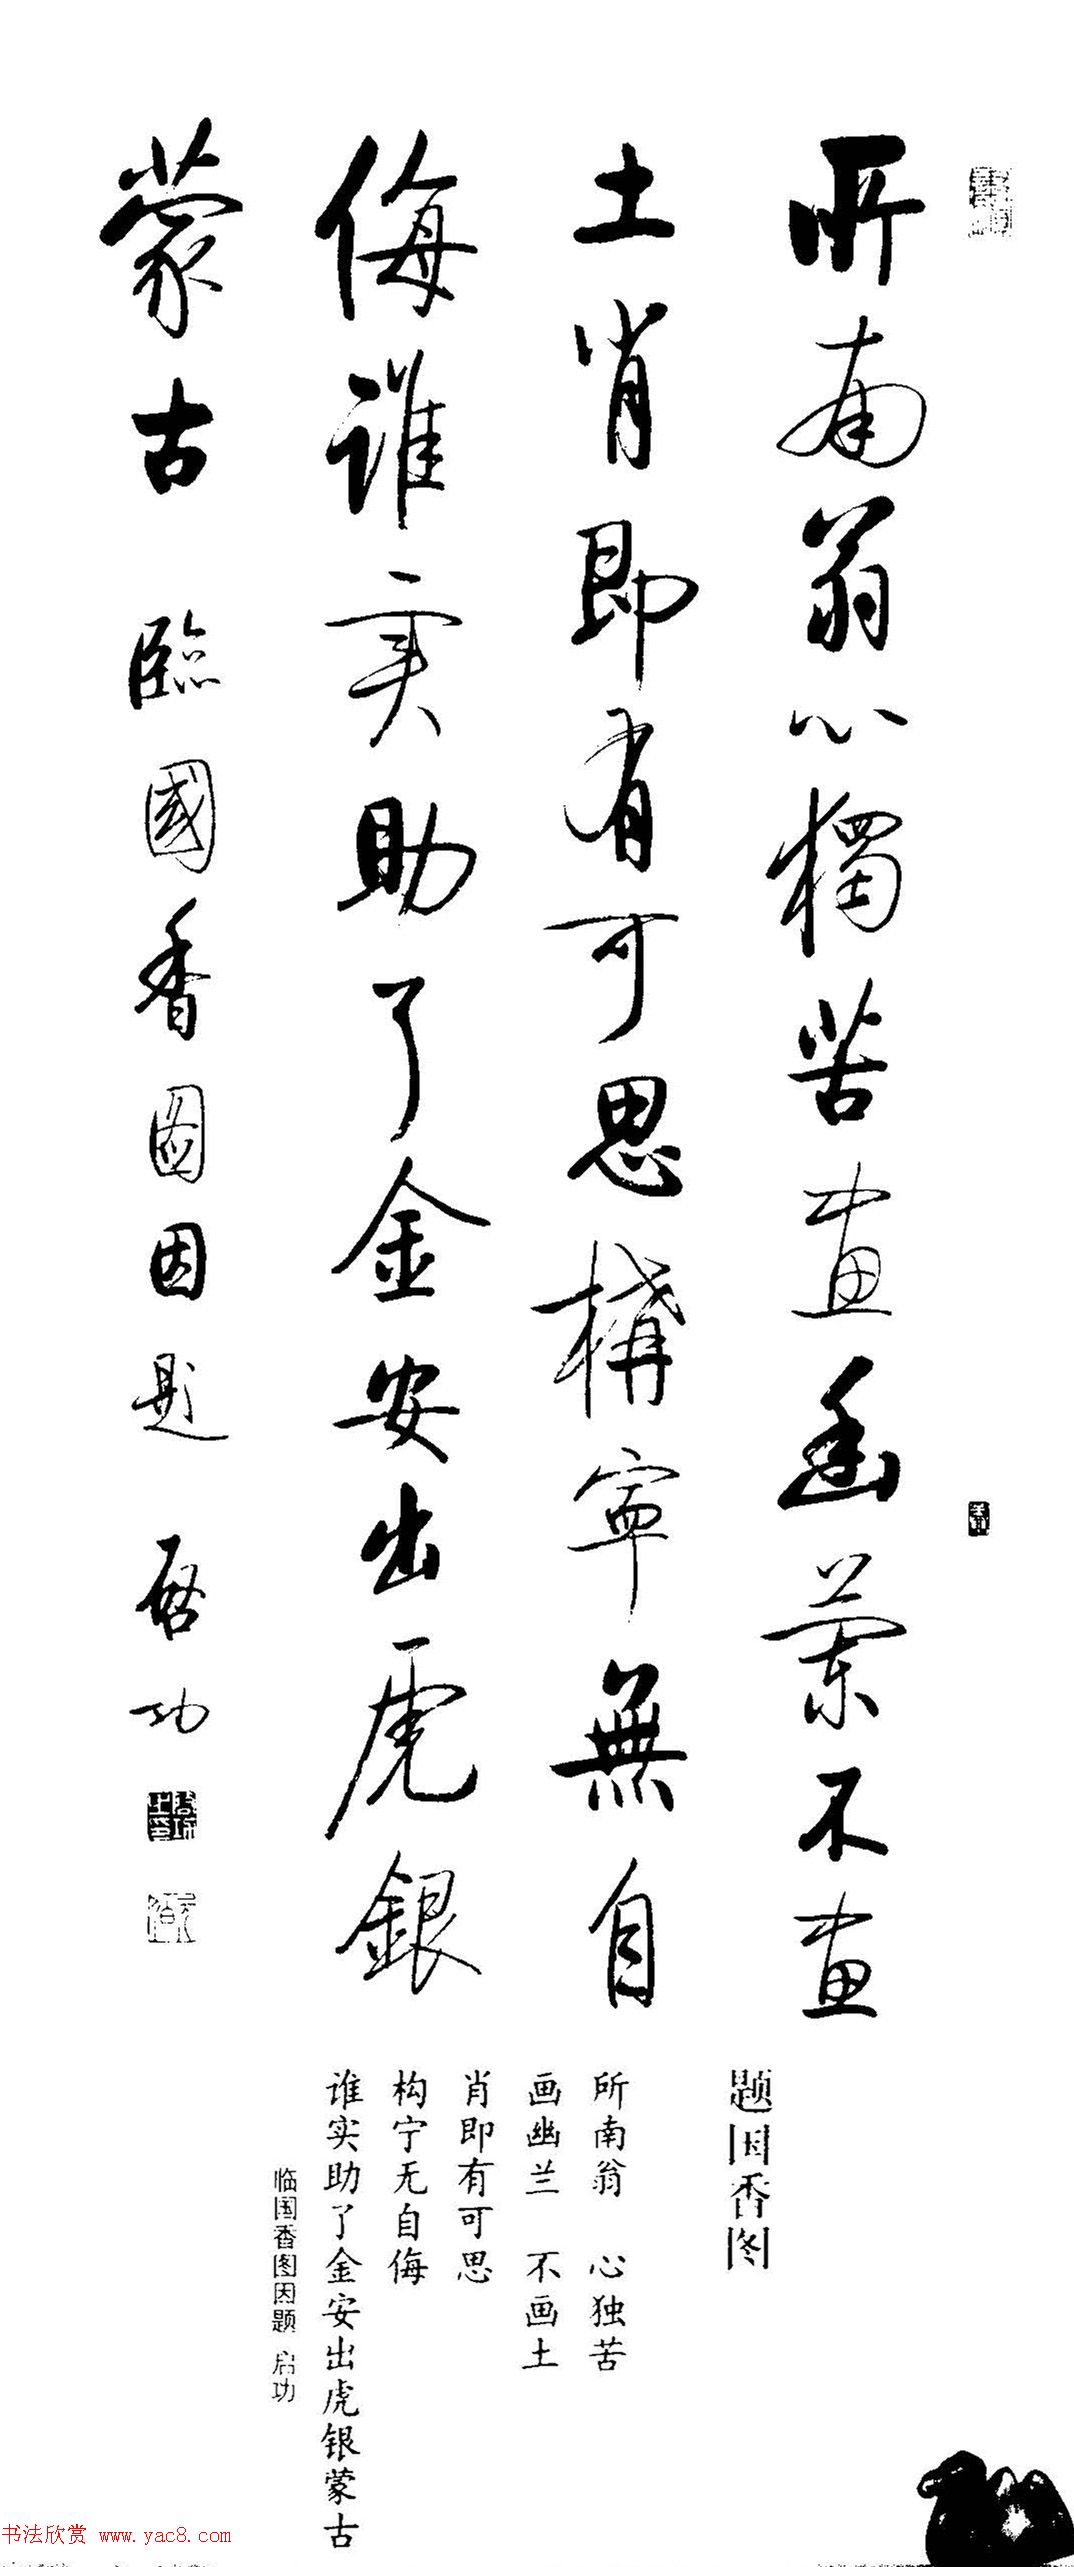 所南翁心獨苦畫幽蘭不畫
土肖即有可思構寧無自
侮谁实助了金安出虎銀
蒙古 臨國香圖因題 啓功
题国香图
所南翁 心独苦
画幽兰 不画土
肖即有可思
构宁无自侮
谁实助了金安出虎银蒙古
临国香图因题 启功
书法欣赏 www.yac8.com